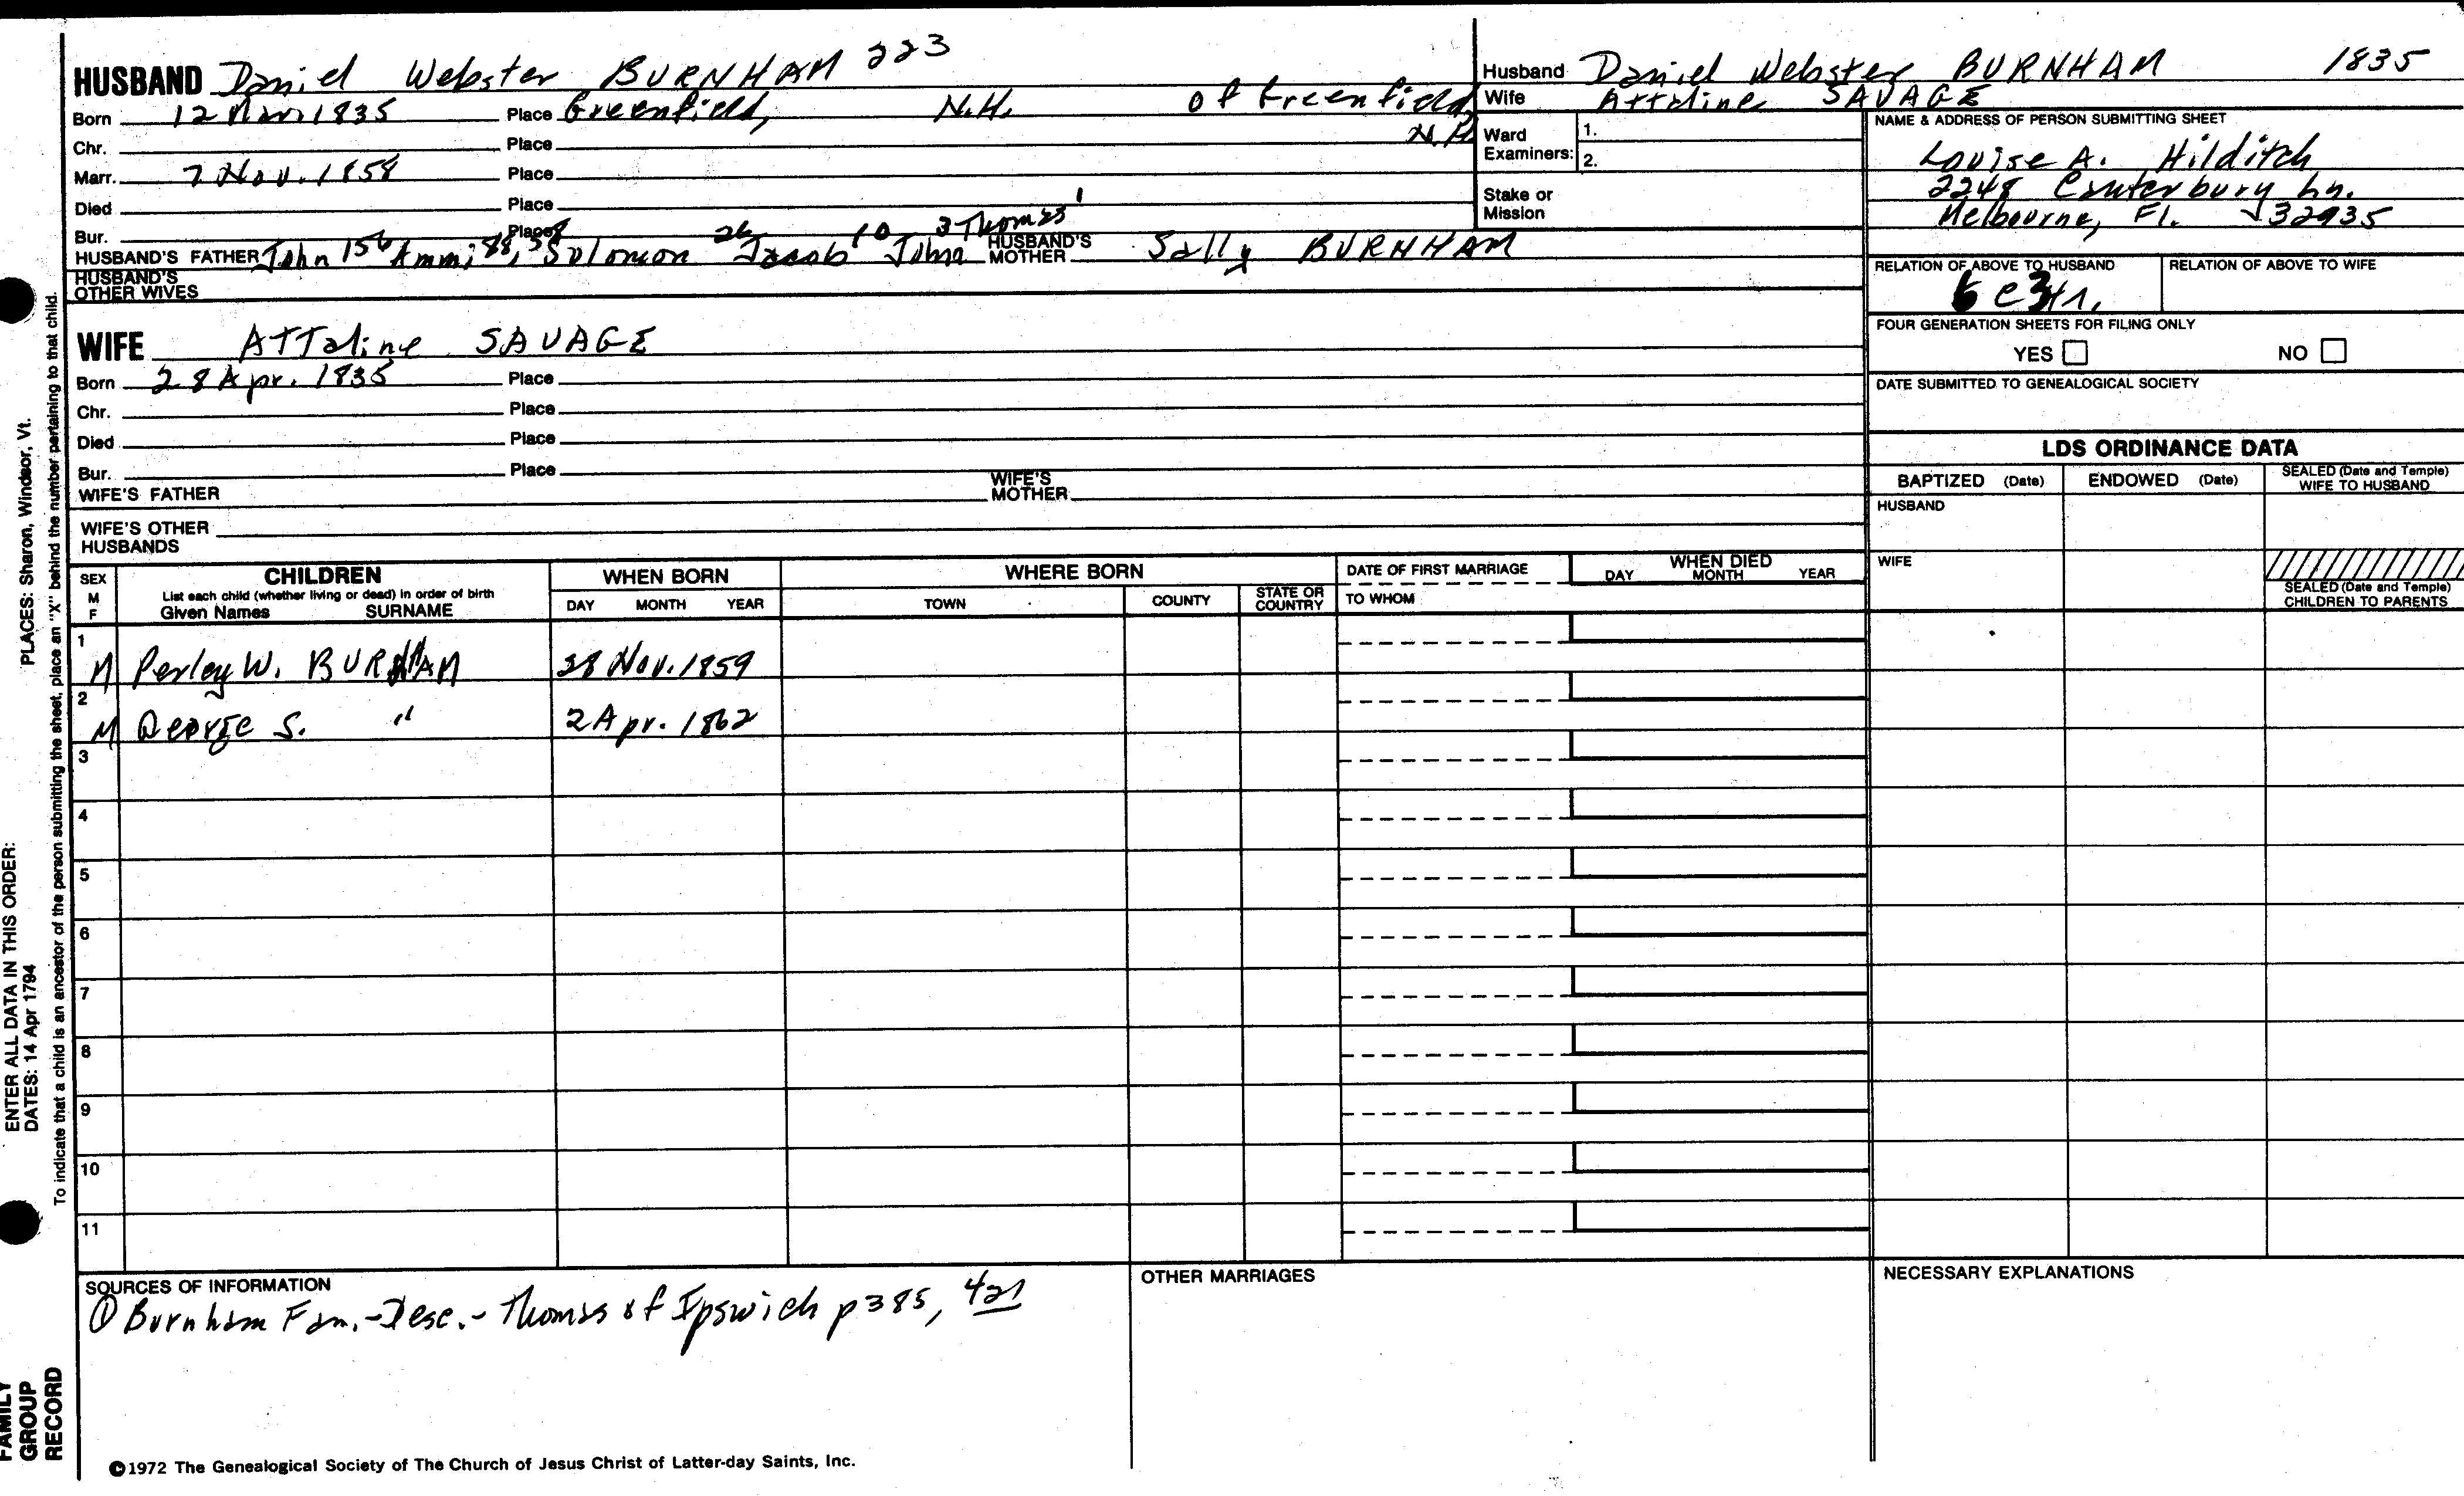 HUSBAND Daniel Webster BURNHAM 223
Born 12 Mar. 1835 Place Greenfield, N.H. of Greenfield, N.H.
Chr. Place
Marr. 7 Nov. 1858 Place
Died Place
Bur. Place
HUSBAND'S FATHER John 156 Ammi 88, Solomon 26 Jacob 10 John 3 Thomas 1 HUSBAND'S MOTHER Sally BURNHAM
HUSBAND'S OTHER WIVES
WIFE ATTaline SAVAGE
Born 28 Apr. 1835 Place
Chr. Place
Died Place
Bur. Place
WIFE'S FATHER WIFE'S MOTHER
WIFE'S OTHER HUSBANDS
Husband Daniel Webster BURNHAM 1835
Wife Attaline SAVAGE
Ward Examiners: 1. 2.
Stake or Mission
NAME & ADDRESS OF PERSON SUBMITTING SHEET
Louise A. Hilditch
2248 Canterbury Ln.
Melbourne, Fl. 32935
RELATION OF ABOVE TO HUSBAND RELATION OF ABOVE TO WIFE
FOUR GENERATION SHEETS FOR FILING ONLY
YES NO
DATE SUBMITTED TO GENEALOGICAL SOCIETY
LDS ORDINANCE DATA
BAPTIZED (Date) ENDOWED (Date) SEALED (Date and Temple) WIFE TO HUSBAND
HUSBAND
WIFE
SEALED (Date and Temple) CHILDREN TO PARENTS
SEX M F
CHILDREN
List each child (whether living or dead) in order of birth
Given Names SURNAME
WHEN BORN
DAY MONTH YEAR
WHERE BORN
TOWN COUNTY STATE OR COUNTRY
DATE OF FIRST MARRIAGE
TO WHOM
WHEN DIED
DAY MONTH YEAR
1 M Perley W. BURNHAM 28 Nov. 1859
2 M George S. " 2 Apr. 1862
3
4
5
6
7
8
9
10
11
SOURCES OF INFORMATION
① Burnham Fam.-Desc.- Thomas of Ipswich p385, 421
OTHER MARRIAGES
NECESSARY EXPLANATIONS
©1972 The Genealogical Society of The Church of Jesus Christ of Latter-day Saints, Inc.
PLACES: Sharon, Windsor, Vt.
To indicate that a child is an ancestor of the person submitting the sheet, place an "X" behind the number pertaining to that child.
ENTER ALL DATA IN THIS ORDER:
DATES: 14 Apr 1794
FAMILY
GROUP
RECORD